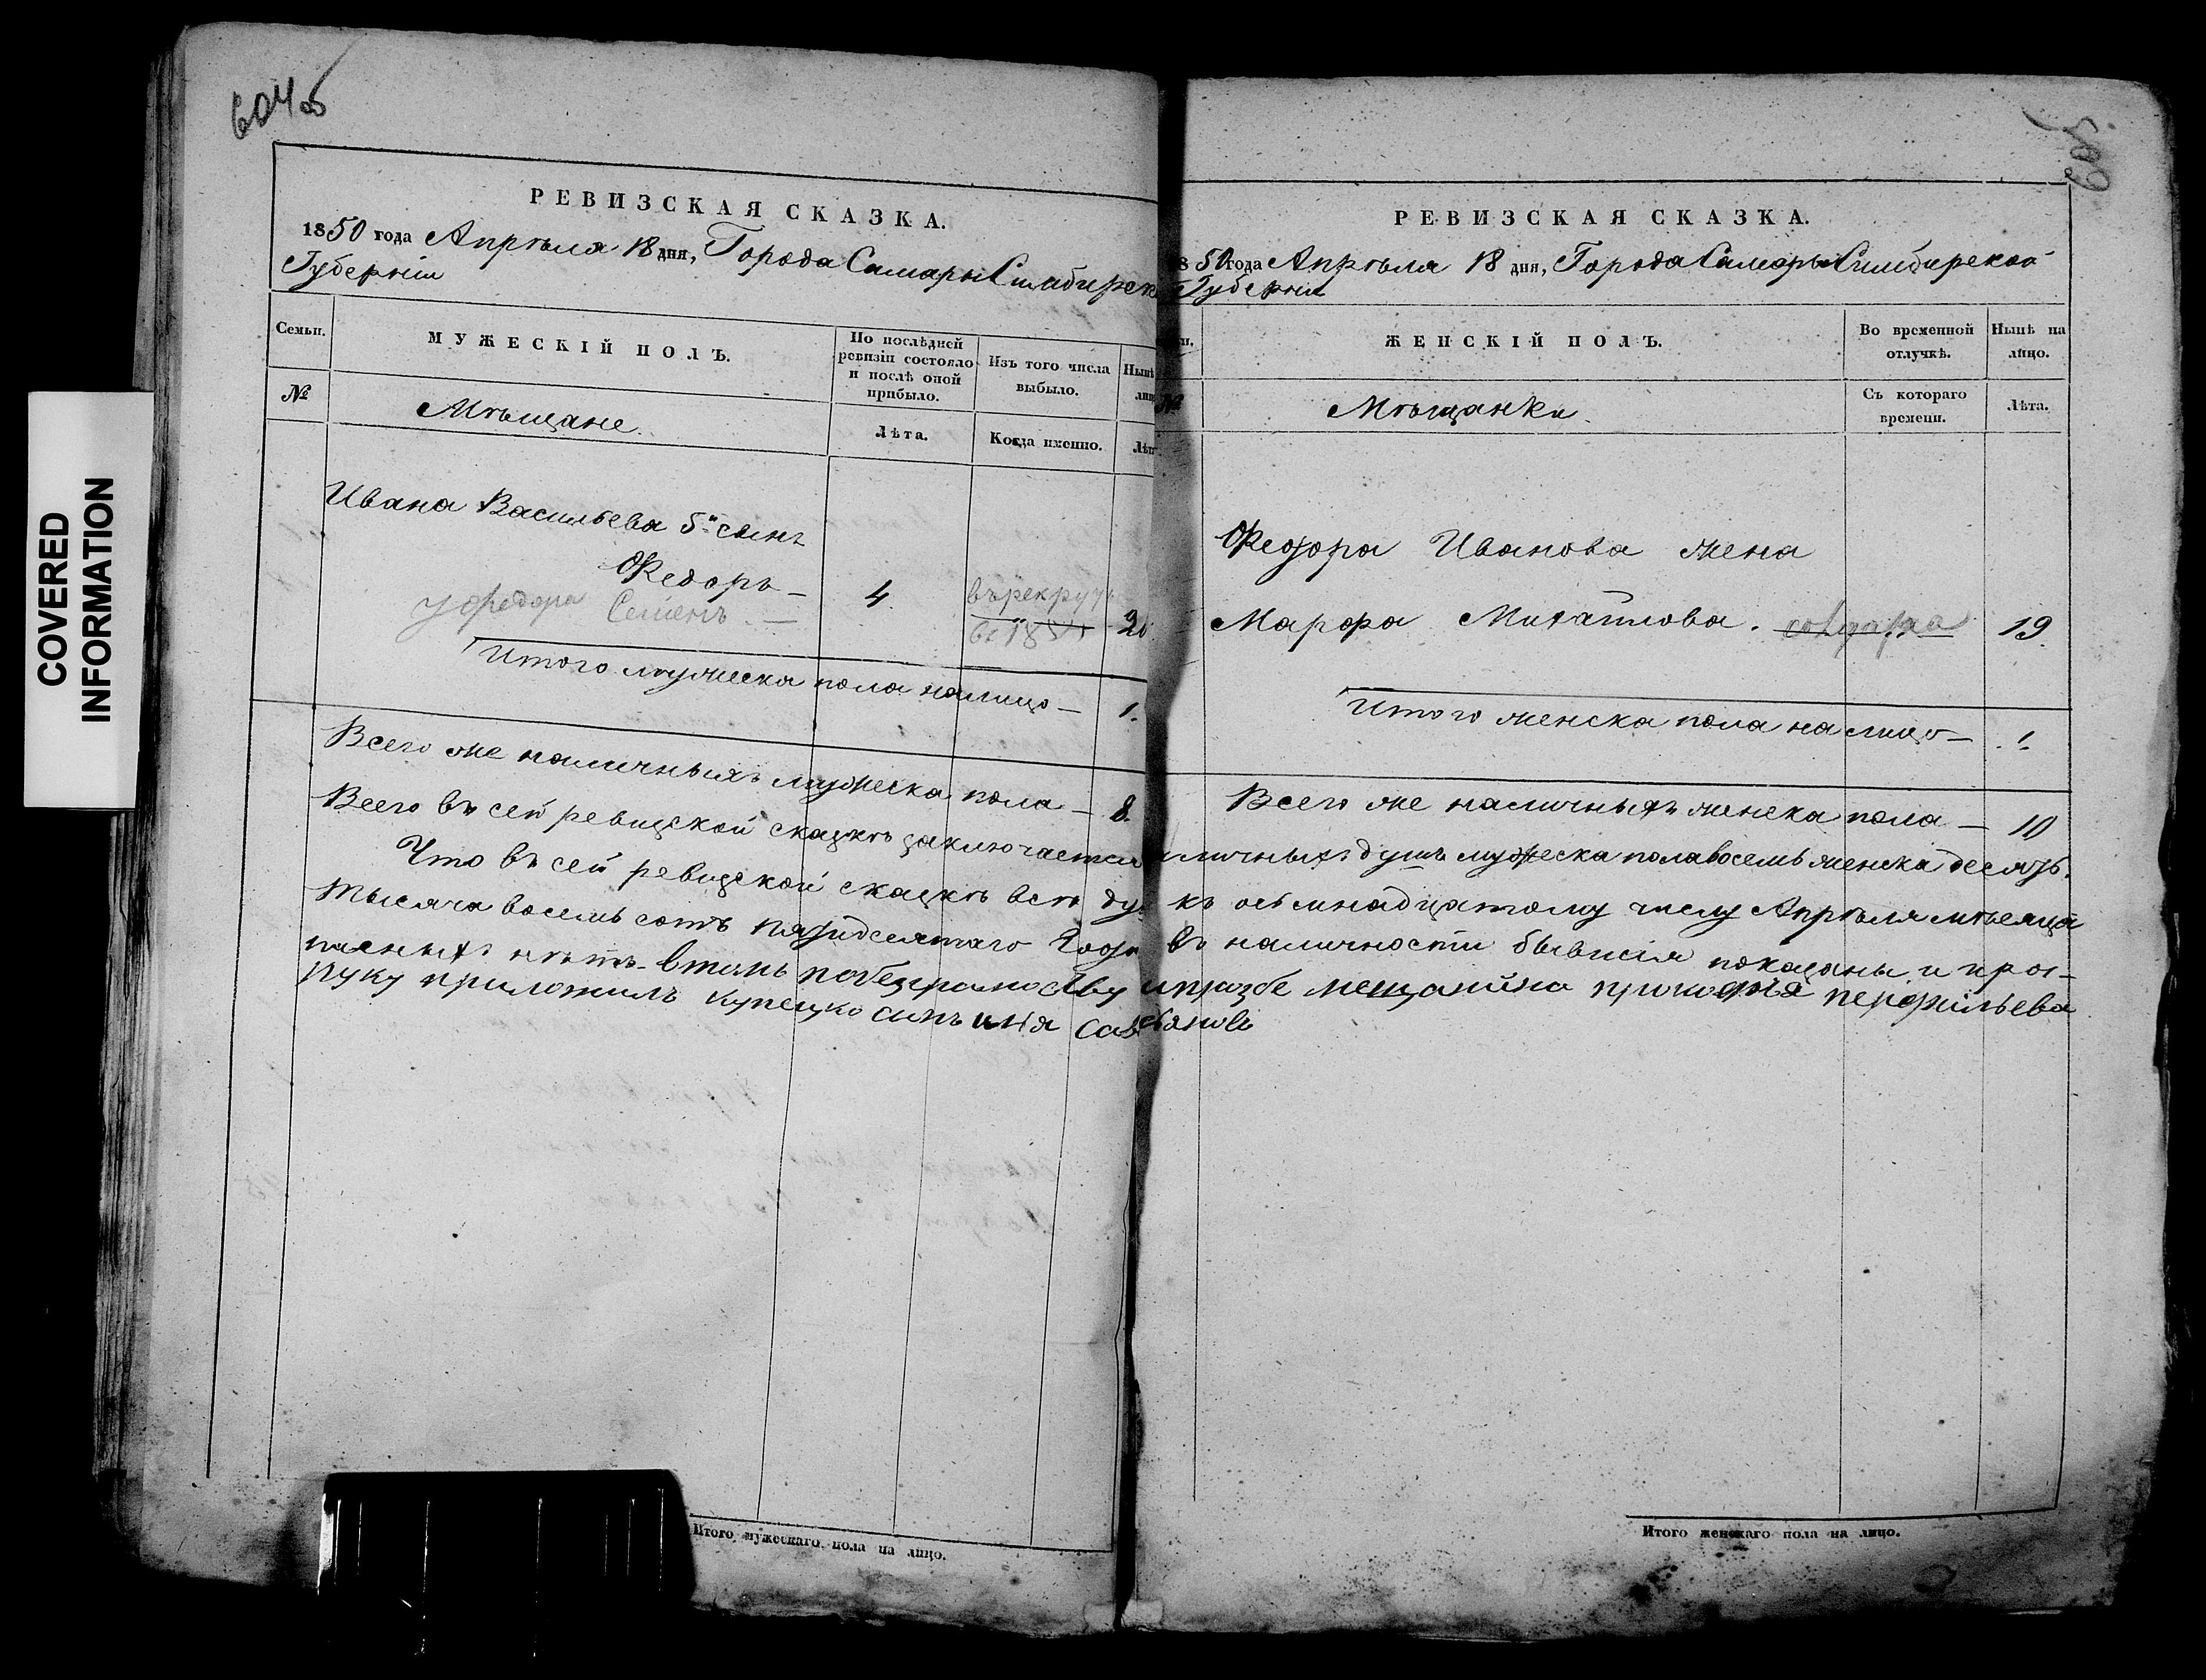 COVERED
INFORMATION
604об
РЕВИЗСКАЯ СКАЗКА.
1850 года Апрѣля 18 дня, Города Самары Симбирск
Губерніи
Семьи.
МУЖЕСКІЙ ПОЛЪ.
По послѣдней
ревизіи состояло
и послѣ оной
прибыло.
Изъ того числа
выбыло.
Нынѣ
лиц
№
Мѣщане.
Лѣта.
Когда именно.
Лѣт
Ивана Васильева 5й сынъ
Ѳедоръ —
4.
въ рекруты
20
у Ѳедора Семенъ —
Итого мужеска пола налицо — 1.
Всего же наличныхъ мужеска пола — 8.
605
РЕВИЗСКАЯ СКАЗКА.
850 года Апрѣля 18 дня, Города Самары Симбирской
Губерніи
ЖЕНСКІЙ ПОЛЪ.
Во временной
отлучкѣ.
Нынѣ на
лицо.
№
Мѣщанки.
Съ котораго
времени.
Лѣта.
Ѳедора Иванова жена
Марфа Михайлова. солдатка 19.
Итого женска пола налицо — 1.
Всего же наличныхъ женска пола — 10
Всего въ сей ревизской сказкѣ заключается наличныхъ душъ мужеска пола восемь женска десять.
Что въ сей ревизской сказкѣ всѣ ду къ осьмнадцатому числу Апрѣля мѣсяца
тысяча восемь сотъ пятидесятаго года въ наличности бывшія показаны и проп-
исныхъ нѣтъ. втомъ побезграмотству ипрозбе мещанина прокофья перфильева
руку приложилъ купецко сынъ
Итого мужескаго пола на лицо.
Итого женскаго пола на лицо.